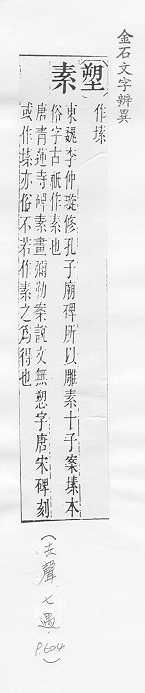 金石文字辨異
塑
作塐
素
東魏李仲璇修孔子廟碑所以雕素十子案塐本
俗字古祇作素也
唐青蓮寺碑素畫彌勒案說文無塑字唐宋碑刻
或作塐亦俗不若作素之為得也
(去聲七遇
P.604)